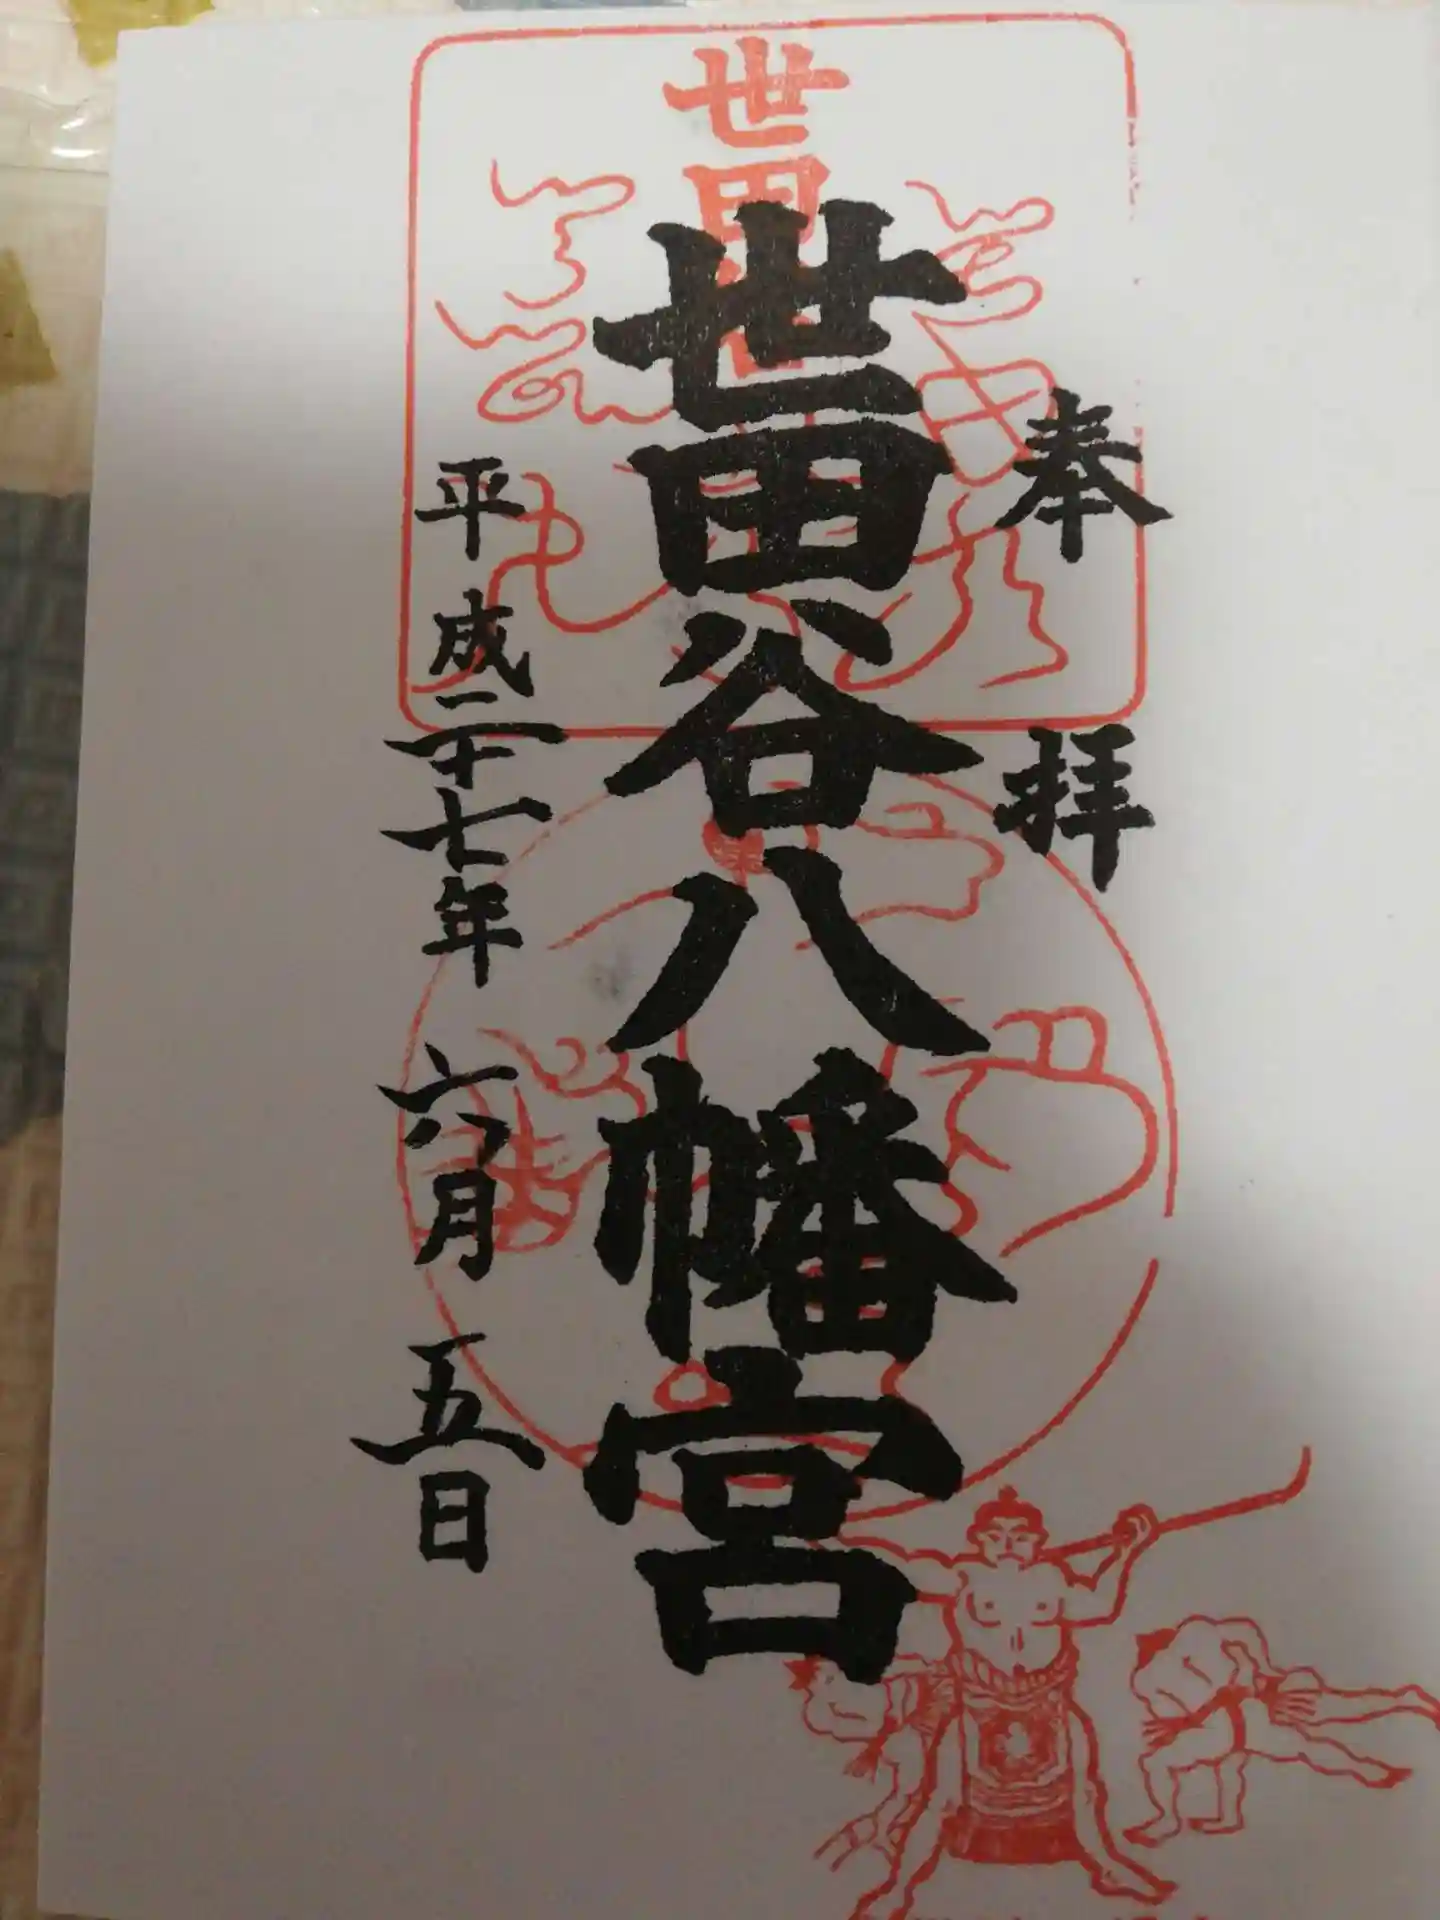 奉拝
世田谷八幡宮
平成二十七年 六月 五日
世田